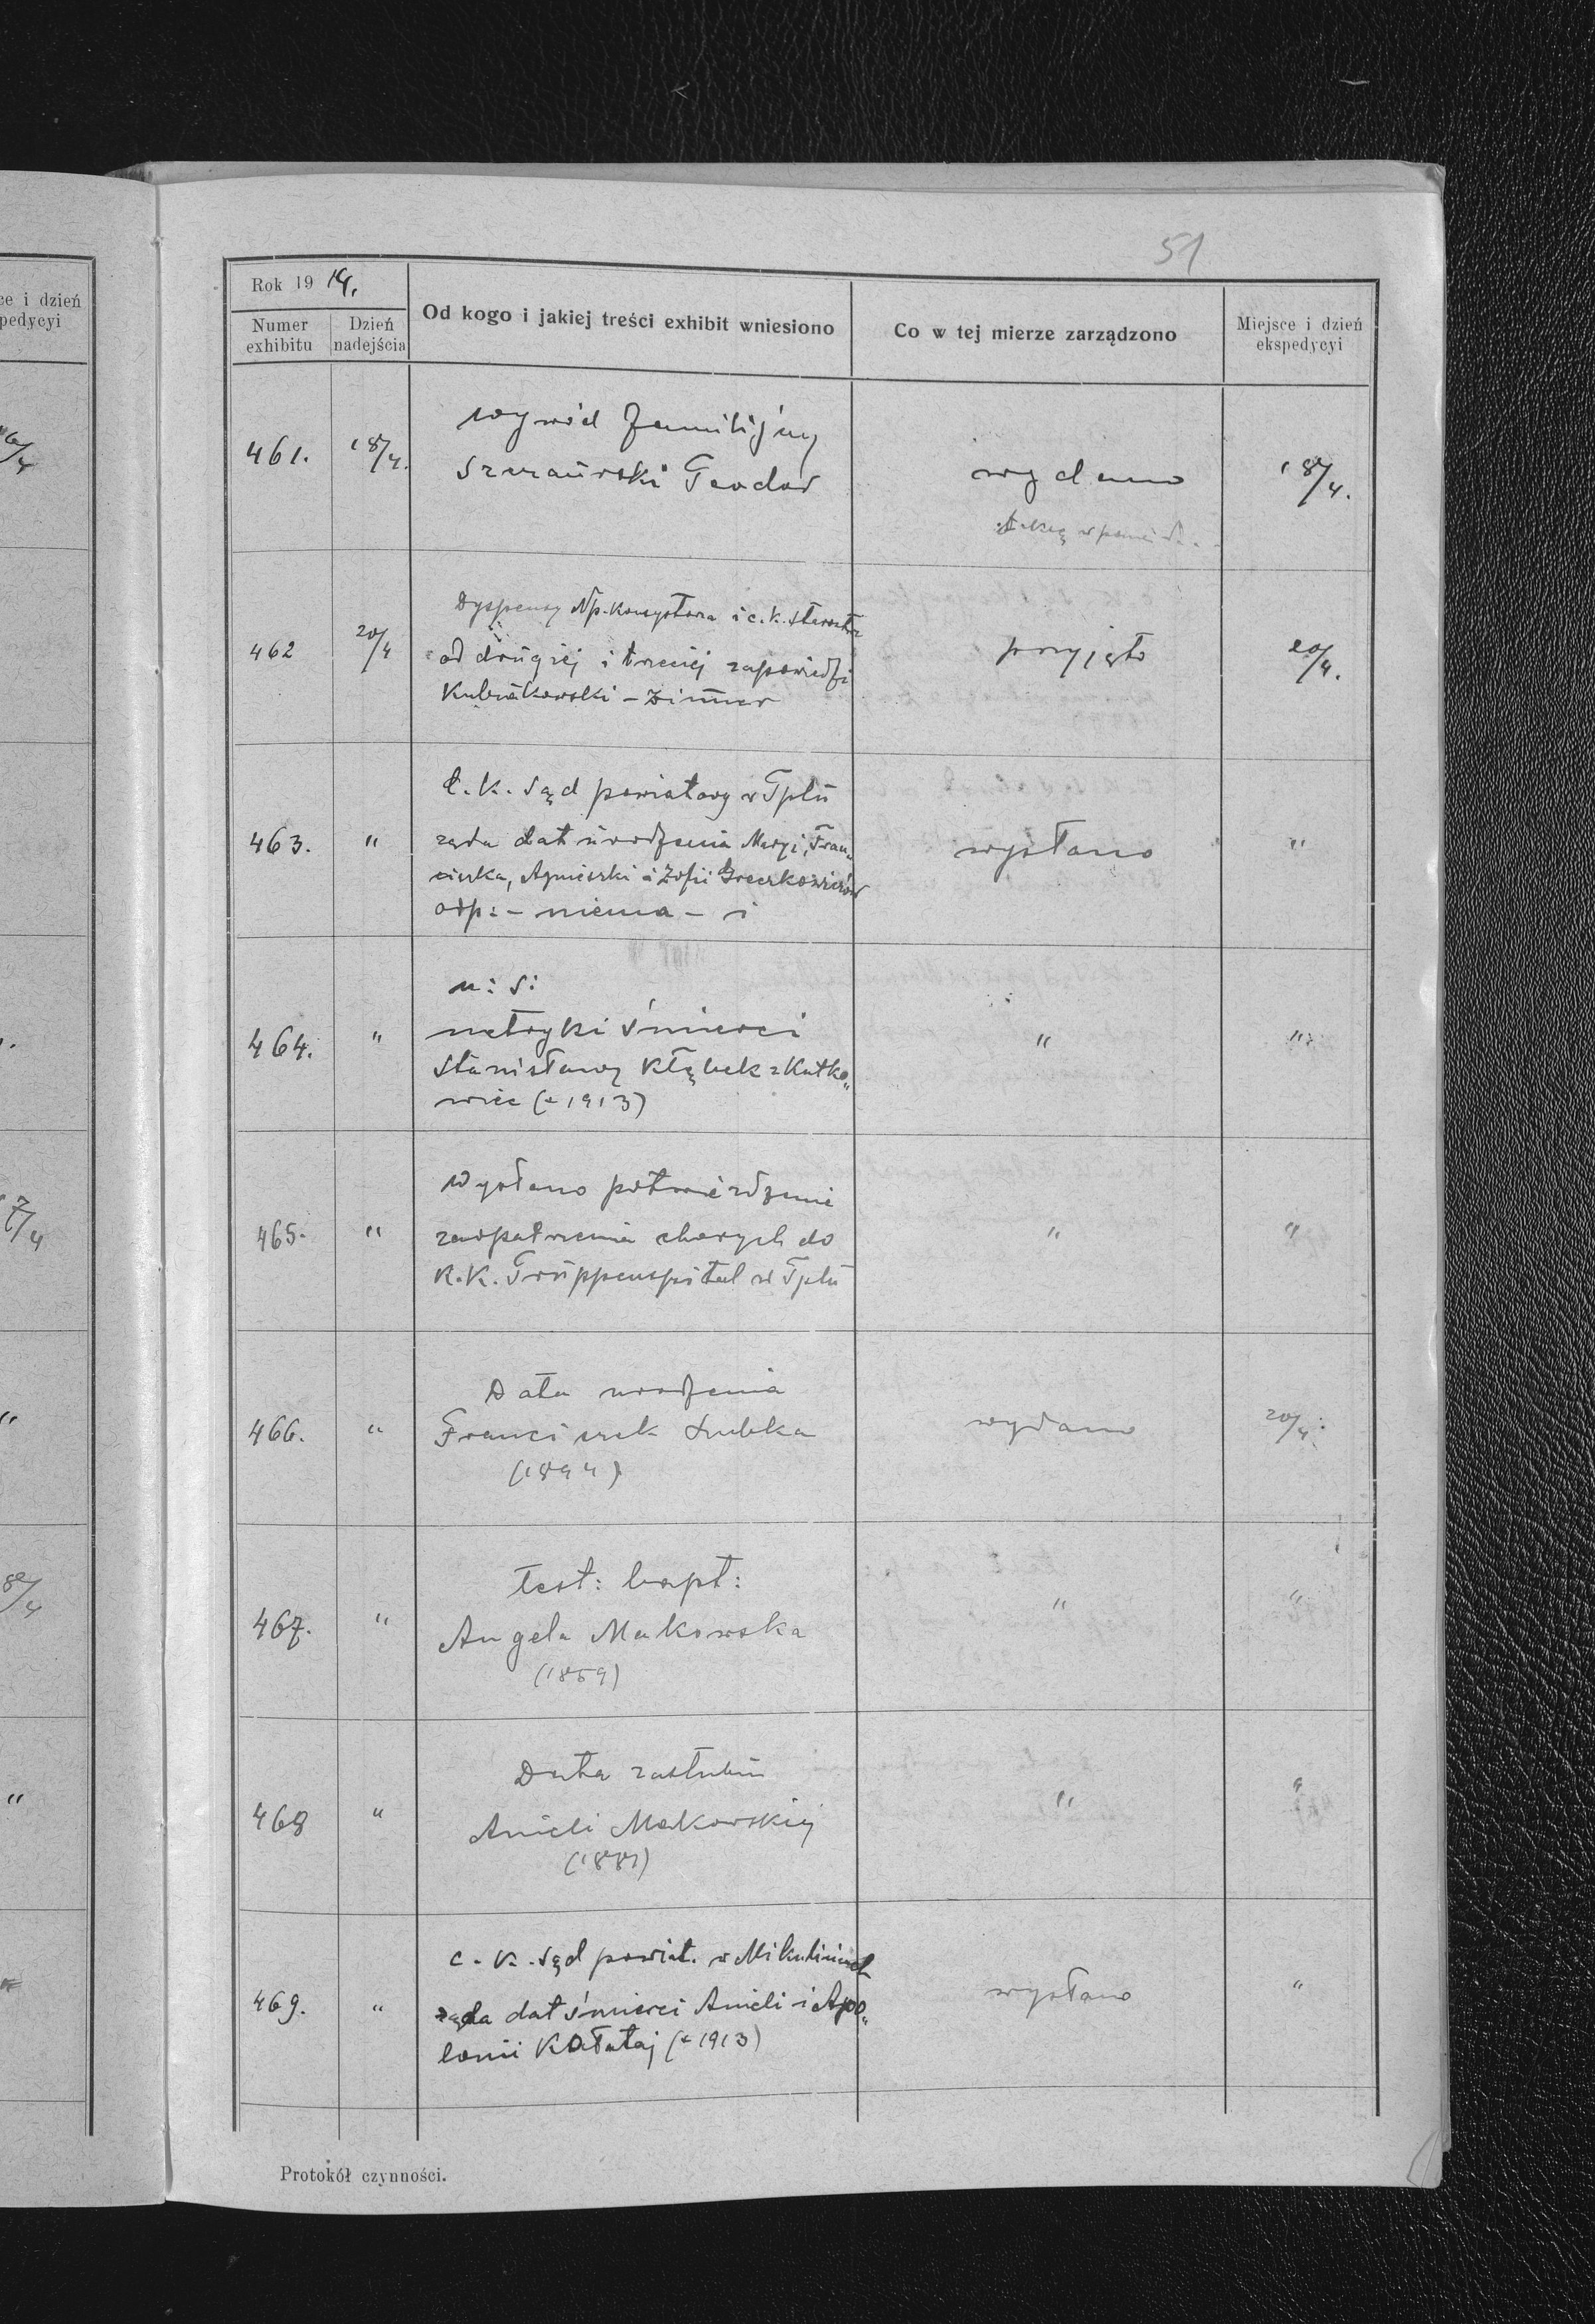 51
ce i dzień
pedycyi
Rok 1914.
Numer exhibitu
Dzień nadejścia
Od kogo i jakiej treści exhibit wniesiono
Co w tej mierze zarządzono
Miejsce i dzień ekspedycyi
461. 18/4. wywód familijny
Teodor
wydano 18/4.
462 20/4 Dyspensy Np. Konsystorza i c. k. Starostwa
od drugiej i trzeciej zapowiedzi
– Zimmer
przyjęto 20/4.
463. " C. k. Sąd powiatowy w Tplu
żąda dat urodzenia Maryi, Fran„
ciszka, Agnieszki i Zofii
odp: – niema – i
wysłano "
464. " n: s:
metryki śmierci
Stanisławy Kłębek z Kutko„
wiec (+ 1913)
" "
465. " Wysłano potwierdzenie
zaopatrzenia chorych do
K. K. Truppenspital w Tplu
" "
466. " Data urodzenia
Franciszek
(1894)
wydano 20/4.
467. " test: bapt:
Angela Makowska
(1859)
" "
468 " Data zaślubin
Anieli Makowskiej
(1881)
" "
469. " c. k. Sąd powiat. w Mikulińcach
żąda dat śmierci Anieli i Apo„
lonii Kołataj (+ 1913)
wysłano "
Protokół czynności.